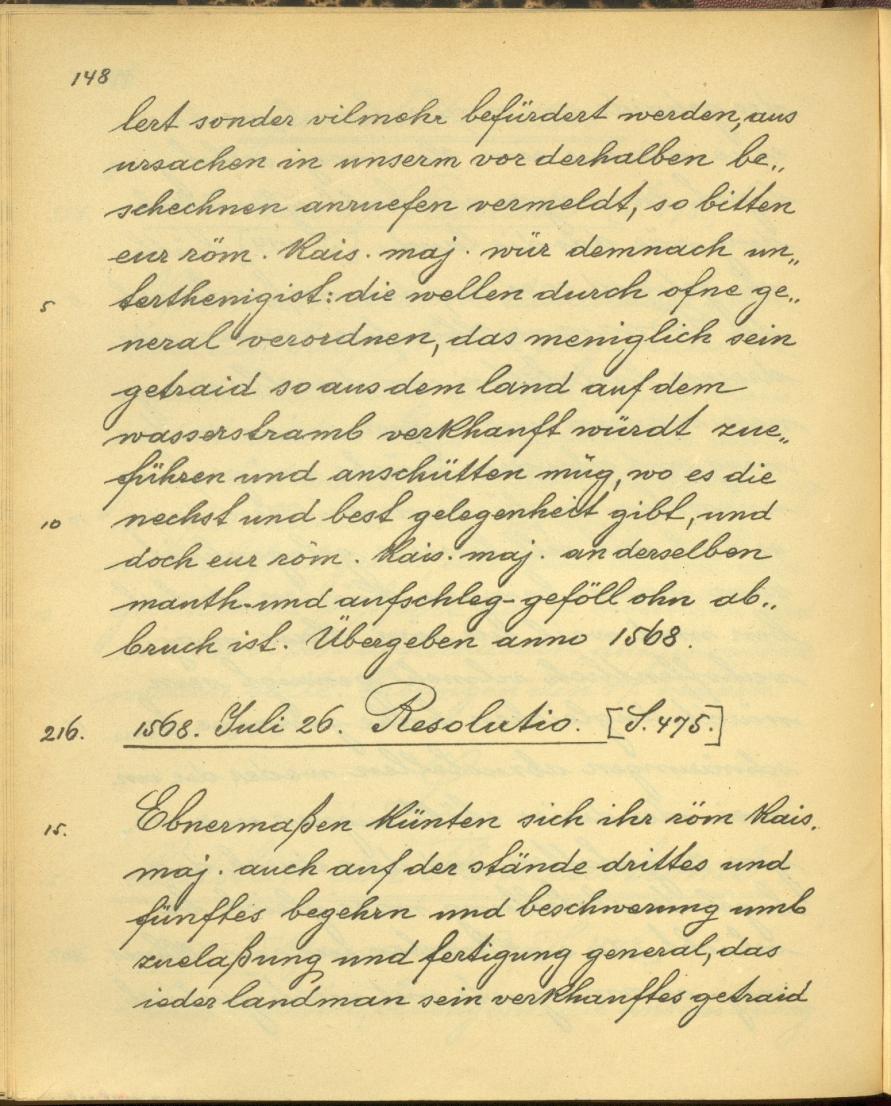 148
lert sonder vilmehr befürdert werden, aus
ursachen in unserm vor derhalben be„
schechnen anruefen vermeldt, so bitten
eur röm. Kais. maj. wür demnach un„
5 terthenigist: die wellen durch ofne ge„
neral verordnen, das meniglich sein
getraid so aus dem land auf dem
wasserstramb verkhauft würdt zue„
führen und anschütten müg, wo es die
10 nechst und best gelegenheit gibt, und
doch eur röm. Kais. maj. an derselben
mauth- und aufschleg-geföll ohn ab„
bruch ist. Übergeben anno 1568.
216. 1568. Juli 26. Resolutio. [S. 475.]
15. Ebnermaßen künten sich ihr röm Kais.
maj. auch auf der stände drittes und
fünftes begehrn und beschwerung umb
zuelaßung und fertigung general, das
ieder landman sein verkhauftes getraid